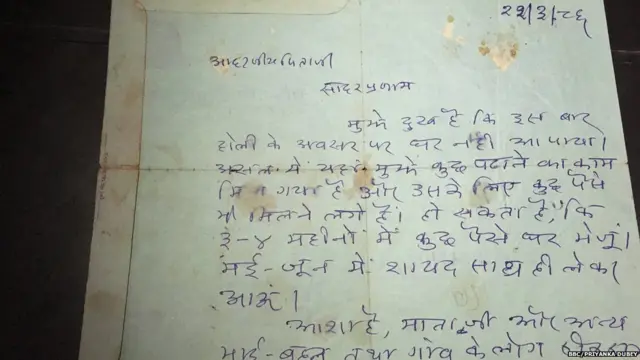 २२/३/८६
आदरणीय पिताजी
सादर प्रणाम
मुझे दुख है कि इस बार
होली के अवसर पर घर नहीं आ पाया।
असल में यहां मुझे कुछ पढाने का काम
मिल गया है और उसके लिए कुछ पैसे
भी मिलने लगे हैं। हो सकता है, कि
३-४ महीनों में कुछ पैसे घर भेजूं।
मई-जून में शायद साथ ही लेकर
आऊं।
आशा है, माता जी और अन्य
भाई-बहन तथा गांव के लोग
BBC/PRIYANKA DUBEY